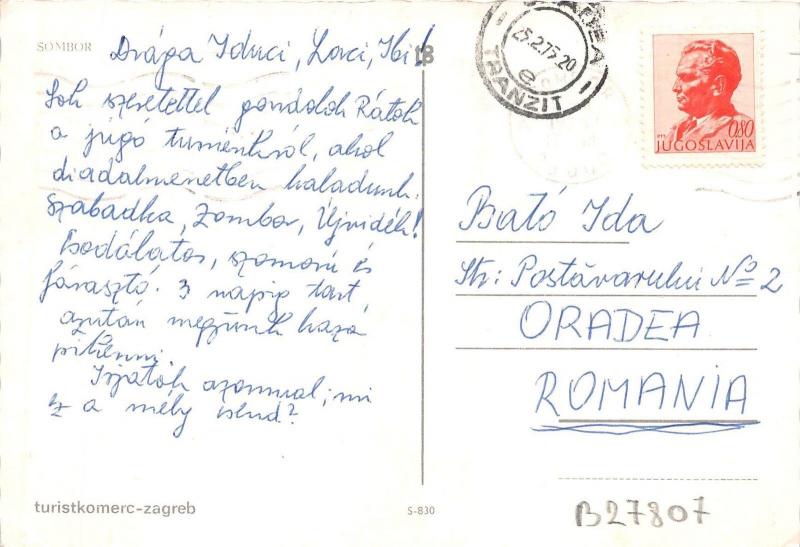 SOMBOR
Drága Iduci, Laci, Ibi!
18
Sok szeretettel gondolok Rátok
a jugó turnénkról, ahol
diadalmenetben haladunk.
Szabadka, Zombor, Újvidék!
Csodálatos, szomorú és
fárasztó. 3 napig tart,
azután megyünk haza
pihenni.
Írjatok azonnal; mi
ez a mély csend?
turistkomerc-zagreb
S-830
25.2.75 20
e
TRANZIT
0,80
JUGOSLAVIJA
Bató Ida
Str: Postăvarului No 2
ORADEA
ROMANIA
B27807